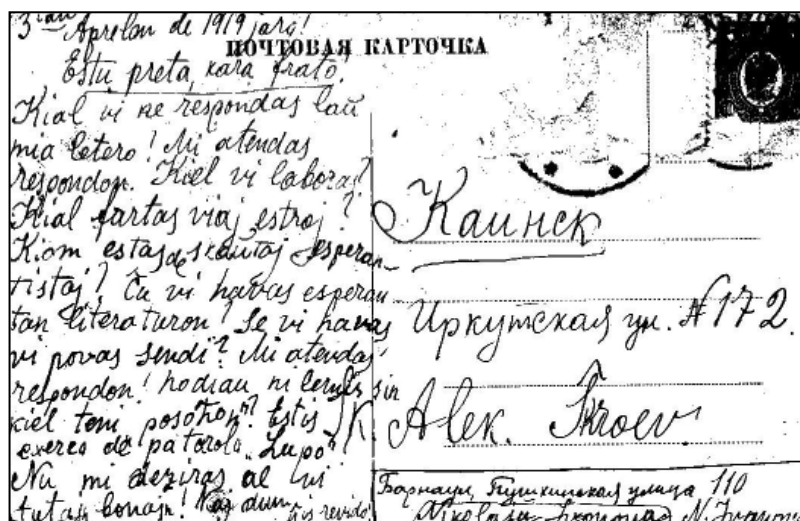 3an Aprelon de 1919 jaro!
ПОЧТОВАЯ КАРТОЧКА
Estu preta, kara frato,
Kial vi ne respondas laŭ
mia letero! Mi atendas
respondon. Kiel vi laboras?
Kial fartas viaj estroj?
Kiom estas da skaŭtoj esperan-
tistaj? Ĉu vi havas esperan
tan literaturon! Se vi havas
vi povas sendi? Mi atendas
respondon! hodiaŭ ni lernis sin
kiel teni posohon? Estis
exeres de patrolo „Lupo"
Nu mi deziras al vi
tutaj bonajn!
Каинск
Иркутская ул. № 172.
Alek.
Барнаул, Пушкинская улица 110